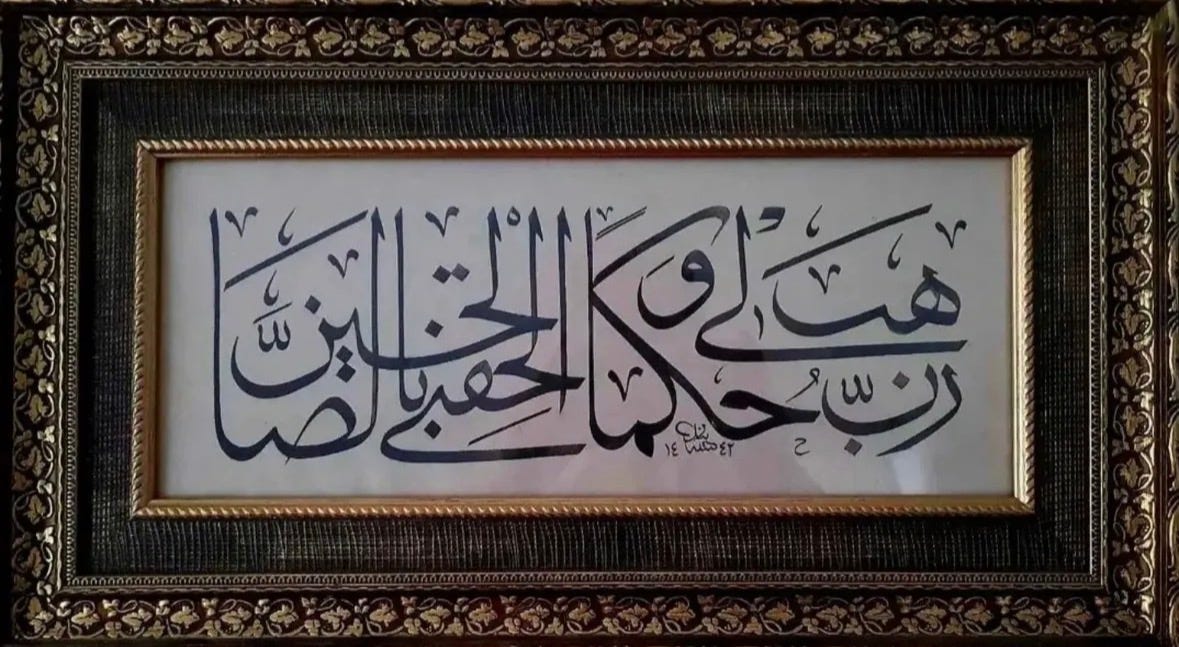 رب هب لي حكما وألحقني بالصالحين
١٤٤٢